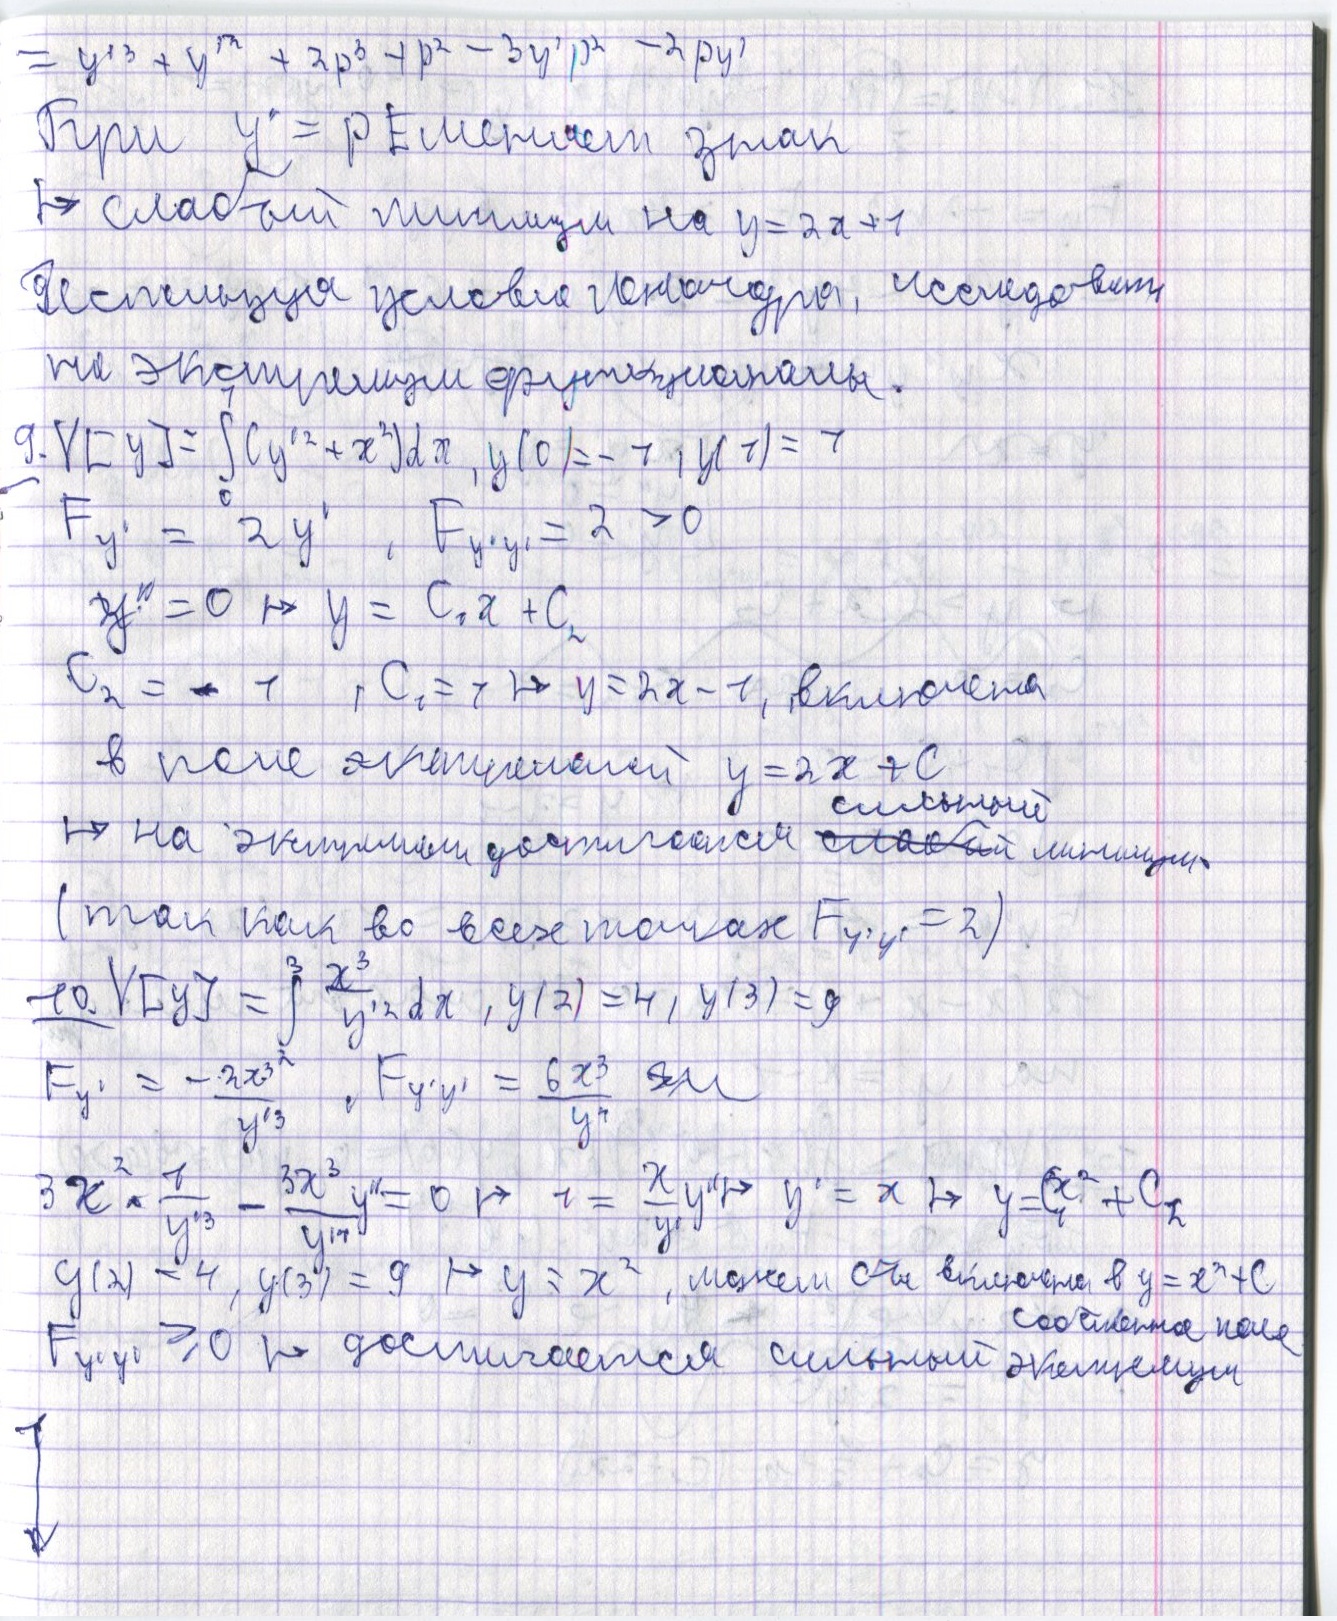 = y'³ + y'² + 2p³ + p² - 3y'p² - 2py'
При y' = p E меняет знак
↦ слабый минимум на y = 2x + 1
Используя условие Лежандра, исследовать
на экстремум функционалы.
9. V[y] = ∫₀¹ (y'² + x²)dx, y(0) = -1, y(1) = 1
F_y' = 2y', F_y'y' = 2 > 0
y'' = 0 ↦ y = C₁x + C₂
C₂ = -1, C₁ = 1 ↦ y = 2x - 1, включена
в поле экстремалей y = 2x + C
↦ на экстремали достигается сильный минимум.
(так как во всех точках F_y'y' = 2)
10. V[y] = ∫₂³ x³/y'² dx, y(2) = 4, y(3) = 9
F_y' = -2x³/y'³, F_y'y' = 6x³/y⁴
3x² · 1/y'³ - 3x³/y'⁴ y'' = 0 ↦ 1 = x/y' y'' ↦ y' = x ↦ y = C₁x² + C₂
y(2) = 4, y(3) = 9 ↦ y = x², может быть включена в y = x² + C
собственное поле
F_y'y' ≥ 0 ↦ достигается сильный экстремум